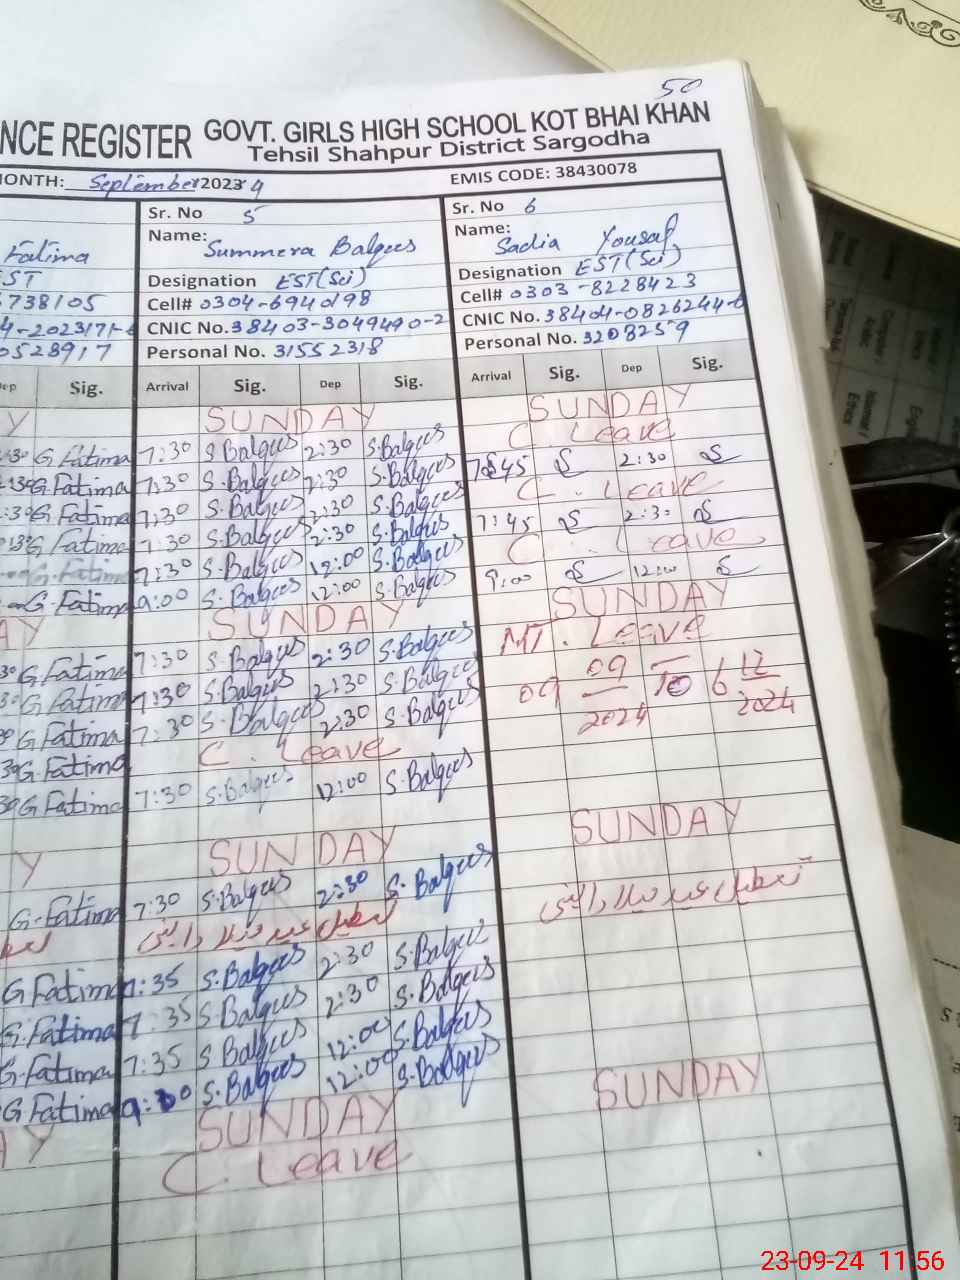 50
NCE REGISTER GOVT. GIRLS HIGH SCHOOL KOT BHAI KHAN
Tehsil Shahpur District Sargodha
MONTH: September 20234 EMIS CODE: 38430078
Sr. No 5 Sr. No 6
Fatima Name: Summera Balqees Name: Sadia Yousaf
ST Designation EST(Sci) Designation EST(Sci)
738105 Cell# 0304-6940198 Cell# 0303-8228423
4-2023171-6 CNIC No. 38403-3049490-2 CNIC No. 38404-0826244-6
0528917 Personal No. 31552318 Personal No. 3208259
Dep Sig. Arrival Sig. Dep Sig. Arrival Sig. Dep Sig.
Y SUNDAY SUNDAY
2:30 G Fatima 7:30 S Balqees 2:30 S.Balqees C Leave
2:30 G Fatima 7:30 S.Balqees 2:30 S.Balqees 7:45 S 2:30 S
2:30 G Fatima 7:30 S.Balqees 2:30 S.Balqees C. Leave
2:30 G Fatima 7:30 S.Balqees 2:30 S.Balqees 7:45 S 2:30 S
G.Fatima 7:30 S.Balqees 12:00 S.Balqees C. Leave
G.Fatima 9:00 S.Balqees 12:00 S.Balqees 9:00 S 12:00 S
AY SUNDAY SUNDAY
30 G Fatima 7:30 S.Balqees 2:30 S.Balqees MT. Leave
30 G Fatima 7:30 S.Balqees 2:30 S.Balqees 09 09/2024 To 6 12/2024
G Fatima 7:30 S.Balqees 2:30 S.Balqees
30 G.Fatima C. Leave
30 G Fatima 7:30 S.Balqees 12:00 S.Balqees
Y SUNDAY SUNDAY
G.Fatima 7:30 S.Balqees 2:30 S.Balqees
تعطیل عید میلاد النبی تعطیل عید میلاد النبی
G Fatima 7:35 S.Balqees 2:30 S.Balqees
G.Fatima 7:35 S.Balqees 2:30 S.Balqees
G.Fatima 7:35 S Balqees 12:00 S.Balqees
G Fatima 9:30 S.Balqees 12:00 S.Balqees
AY SUNDAY SUNDAY
C Leave
23-09-24 11:56